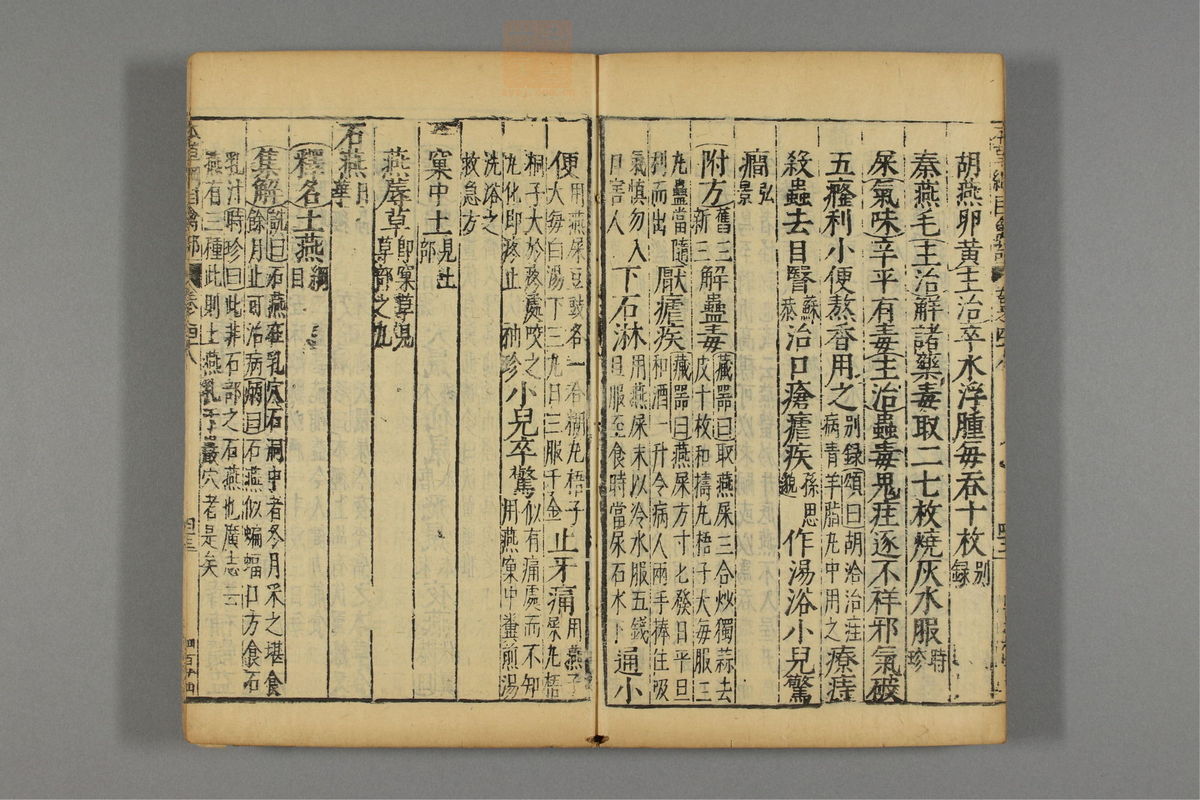 胡燕卵黃主治卒水浮腫每吞十枚別録
秦燕毛主治解諸藥毒取二七枚燒灰水服時珍
屎氣味辛平有毒主治蠱毒鬼疰逐不祥邪氣破
五癃利小便熬香用之別録頌曰胡洽治疰病青羊脂丸中用之療痔
殺蟲去目瞖蘇恭治口瘡瘧疾孫思邈作湯浴小兒驚
癇弘景
附方舊三新三解蠱毒藏器曰取燕屎三合炒獨蒜去皮十枚和擣丸梧子大每服三
丸蠱當隨利而出厭瘧疾藏器曰燕屎方寸匕發日平旦和酒一升令病人兩手捧住吸
氣慎勿入口害人下石淋用燕屎末以冷水服五錢旦服至食時當尿石水下通小
便用燕屎豆豉各一合糊丸梧子大每白湯下三丸日三服千金止牙痛用燕子屎丸梧
桐子大於疼處咬之丸化即疼止袖珍小兒卒驚似有痛處而不知用燕窠中糞煎湯
洗浴之救急方
窠中土見土部
燕蓐草即窠草見草部之九
石燕日華
釋名土燕綱目
集解詵曰石燕在乳穴石洞中者冬月采之堪食餘月止可治病炳曰石燕似蝙蝠口方食石
乳汁時珍曰此非石部之石燕也廣志云燕有三種此則土燕乳于巖穴者是矣